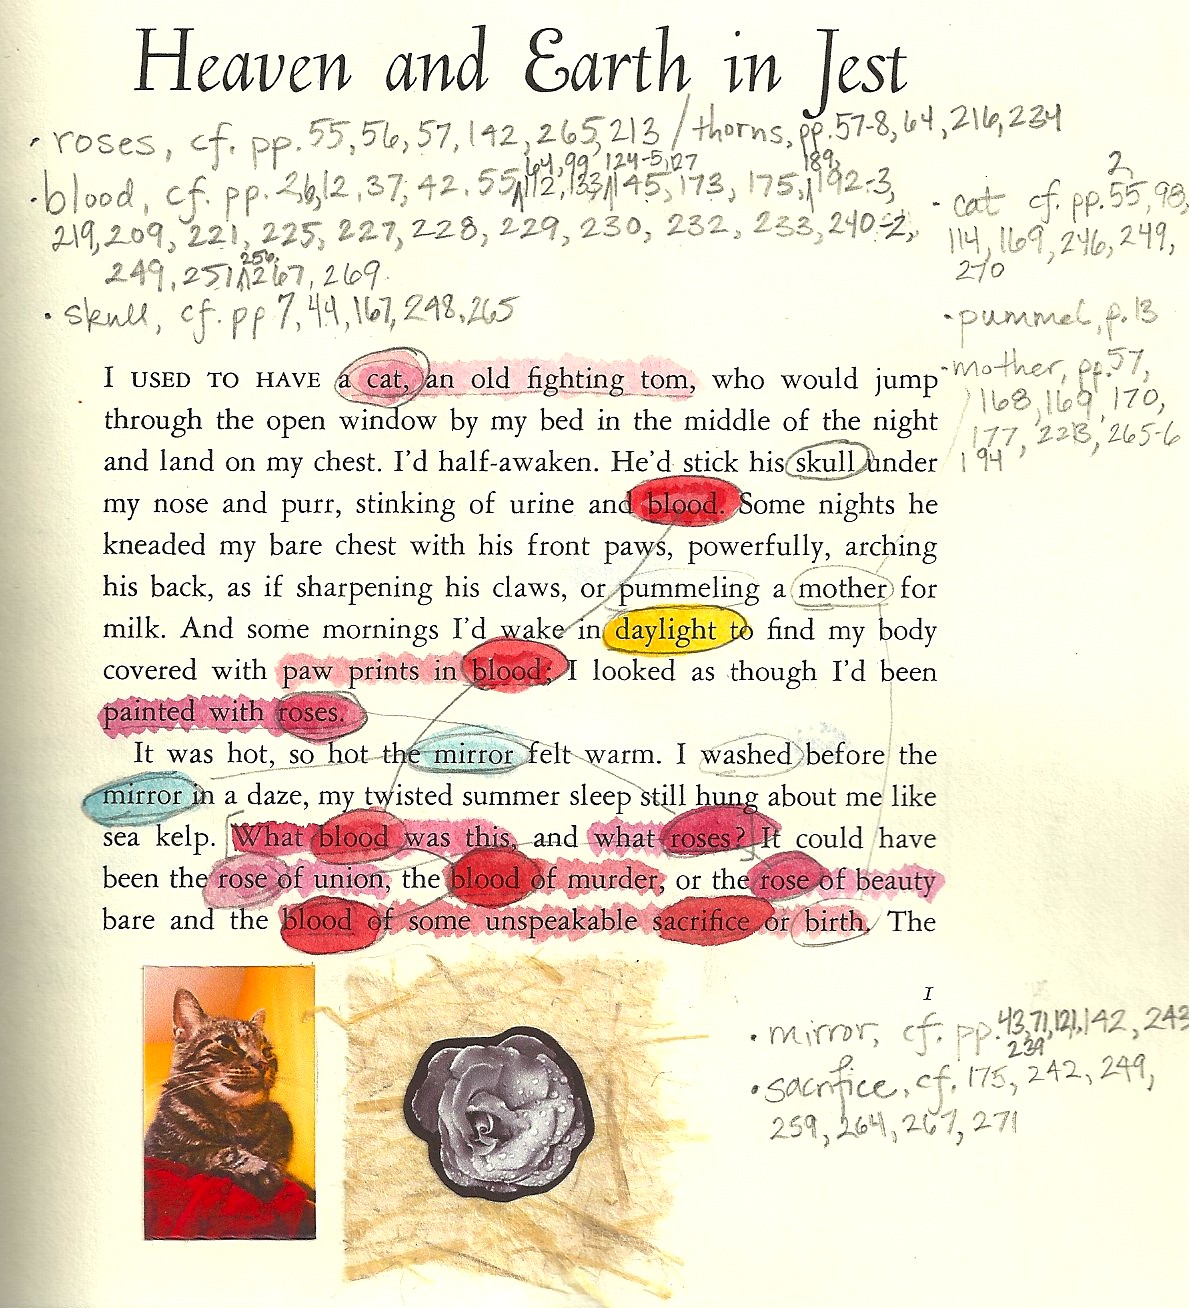 Heaven and Earth in Jest
• roses, cf. pp. 55, 56, 57, 142, 265, 213 / thorns, pp. 57-8, 64, 216, 234
64, 99, 124-5, 127
189,
• blood, cf. pp. 12, 37, 42, 55, 112, 133, 145, 173, 175, 192-3,
219, 209, 221, 225, 227, 228, 229, 230, 232, 233, 240-2,
256,
249, 251, 267, 269
• skull, cf. pp 7, 44, 167, 248, 265
2,
• cat cf. pp. 55, 98,
114, 169, 246, 249,
270
• pummel, p. 13
• mother, pp. 57,
168, 169, 170,
177, 223, 265-6
194
I USED TO HAVE a cat, an old fighting tom, who would jump
through the open window by my bed in the middle of the night
and land on my chest. I'd half-awaken. He'd stick his skull under
my nose and purr, stinking of urine and blood. Some nights he
kneaded my bare chest with his front paws, powerfully, arching
his back, as if sharpening his claws, or pummeling a mother for
milk. And some mornings I'd wake in daylight to find my body
covered with paw prints in blood; I looked as though I'd been
painted with roses.
It was hot, so hot the mirror felt warm. I washed before the
mirror in a daze, my twisted summer sleep still hung about me like
sea kelp. What blood was this, and what roses? It could have
been the rose of union, the blood of murder, or the rose of beauty
bare and the blood of some unspeakable sacrifice or birth. The
I
• mirror, cf. pp. 43, 71, 121, 142, 243
239
• sacrifice, cf. 175, 242, 249,
259, 264, 267, 271